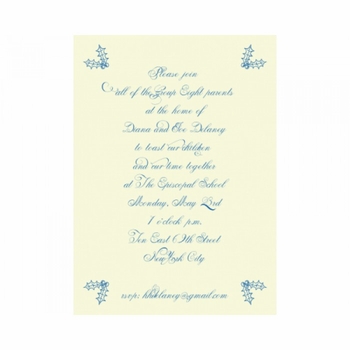 Please join
all of the Group Eight parents
at the home of
Diana and Joe Delaney
to toast our children
and our time together
at The Episcopal School
Monday, May 23rd
o'clock p.m.
Ten East Street
New York City
rsvp: